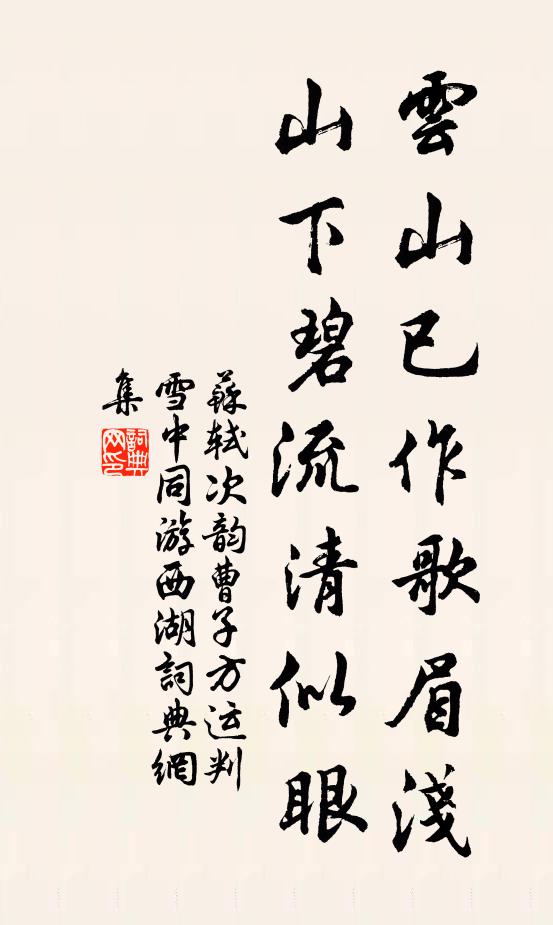 雲山已作歌眉淺
山下碧流清似眼
蘇軾次韵曹子方运判
雪中同游西湖詞典網
集
詞典
网印